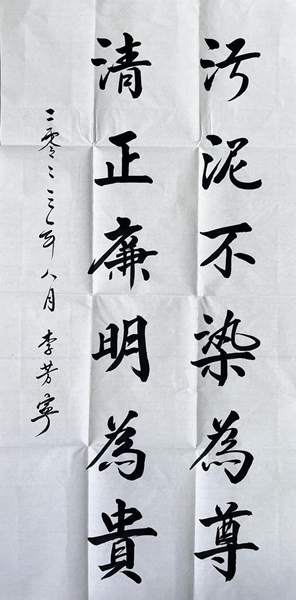 污泥不染為尊
清正廉明為貴
二零二三年八月 李芳寧